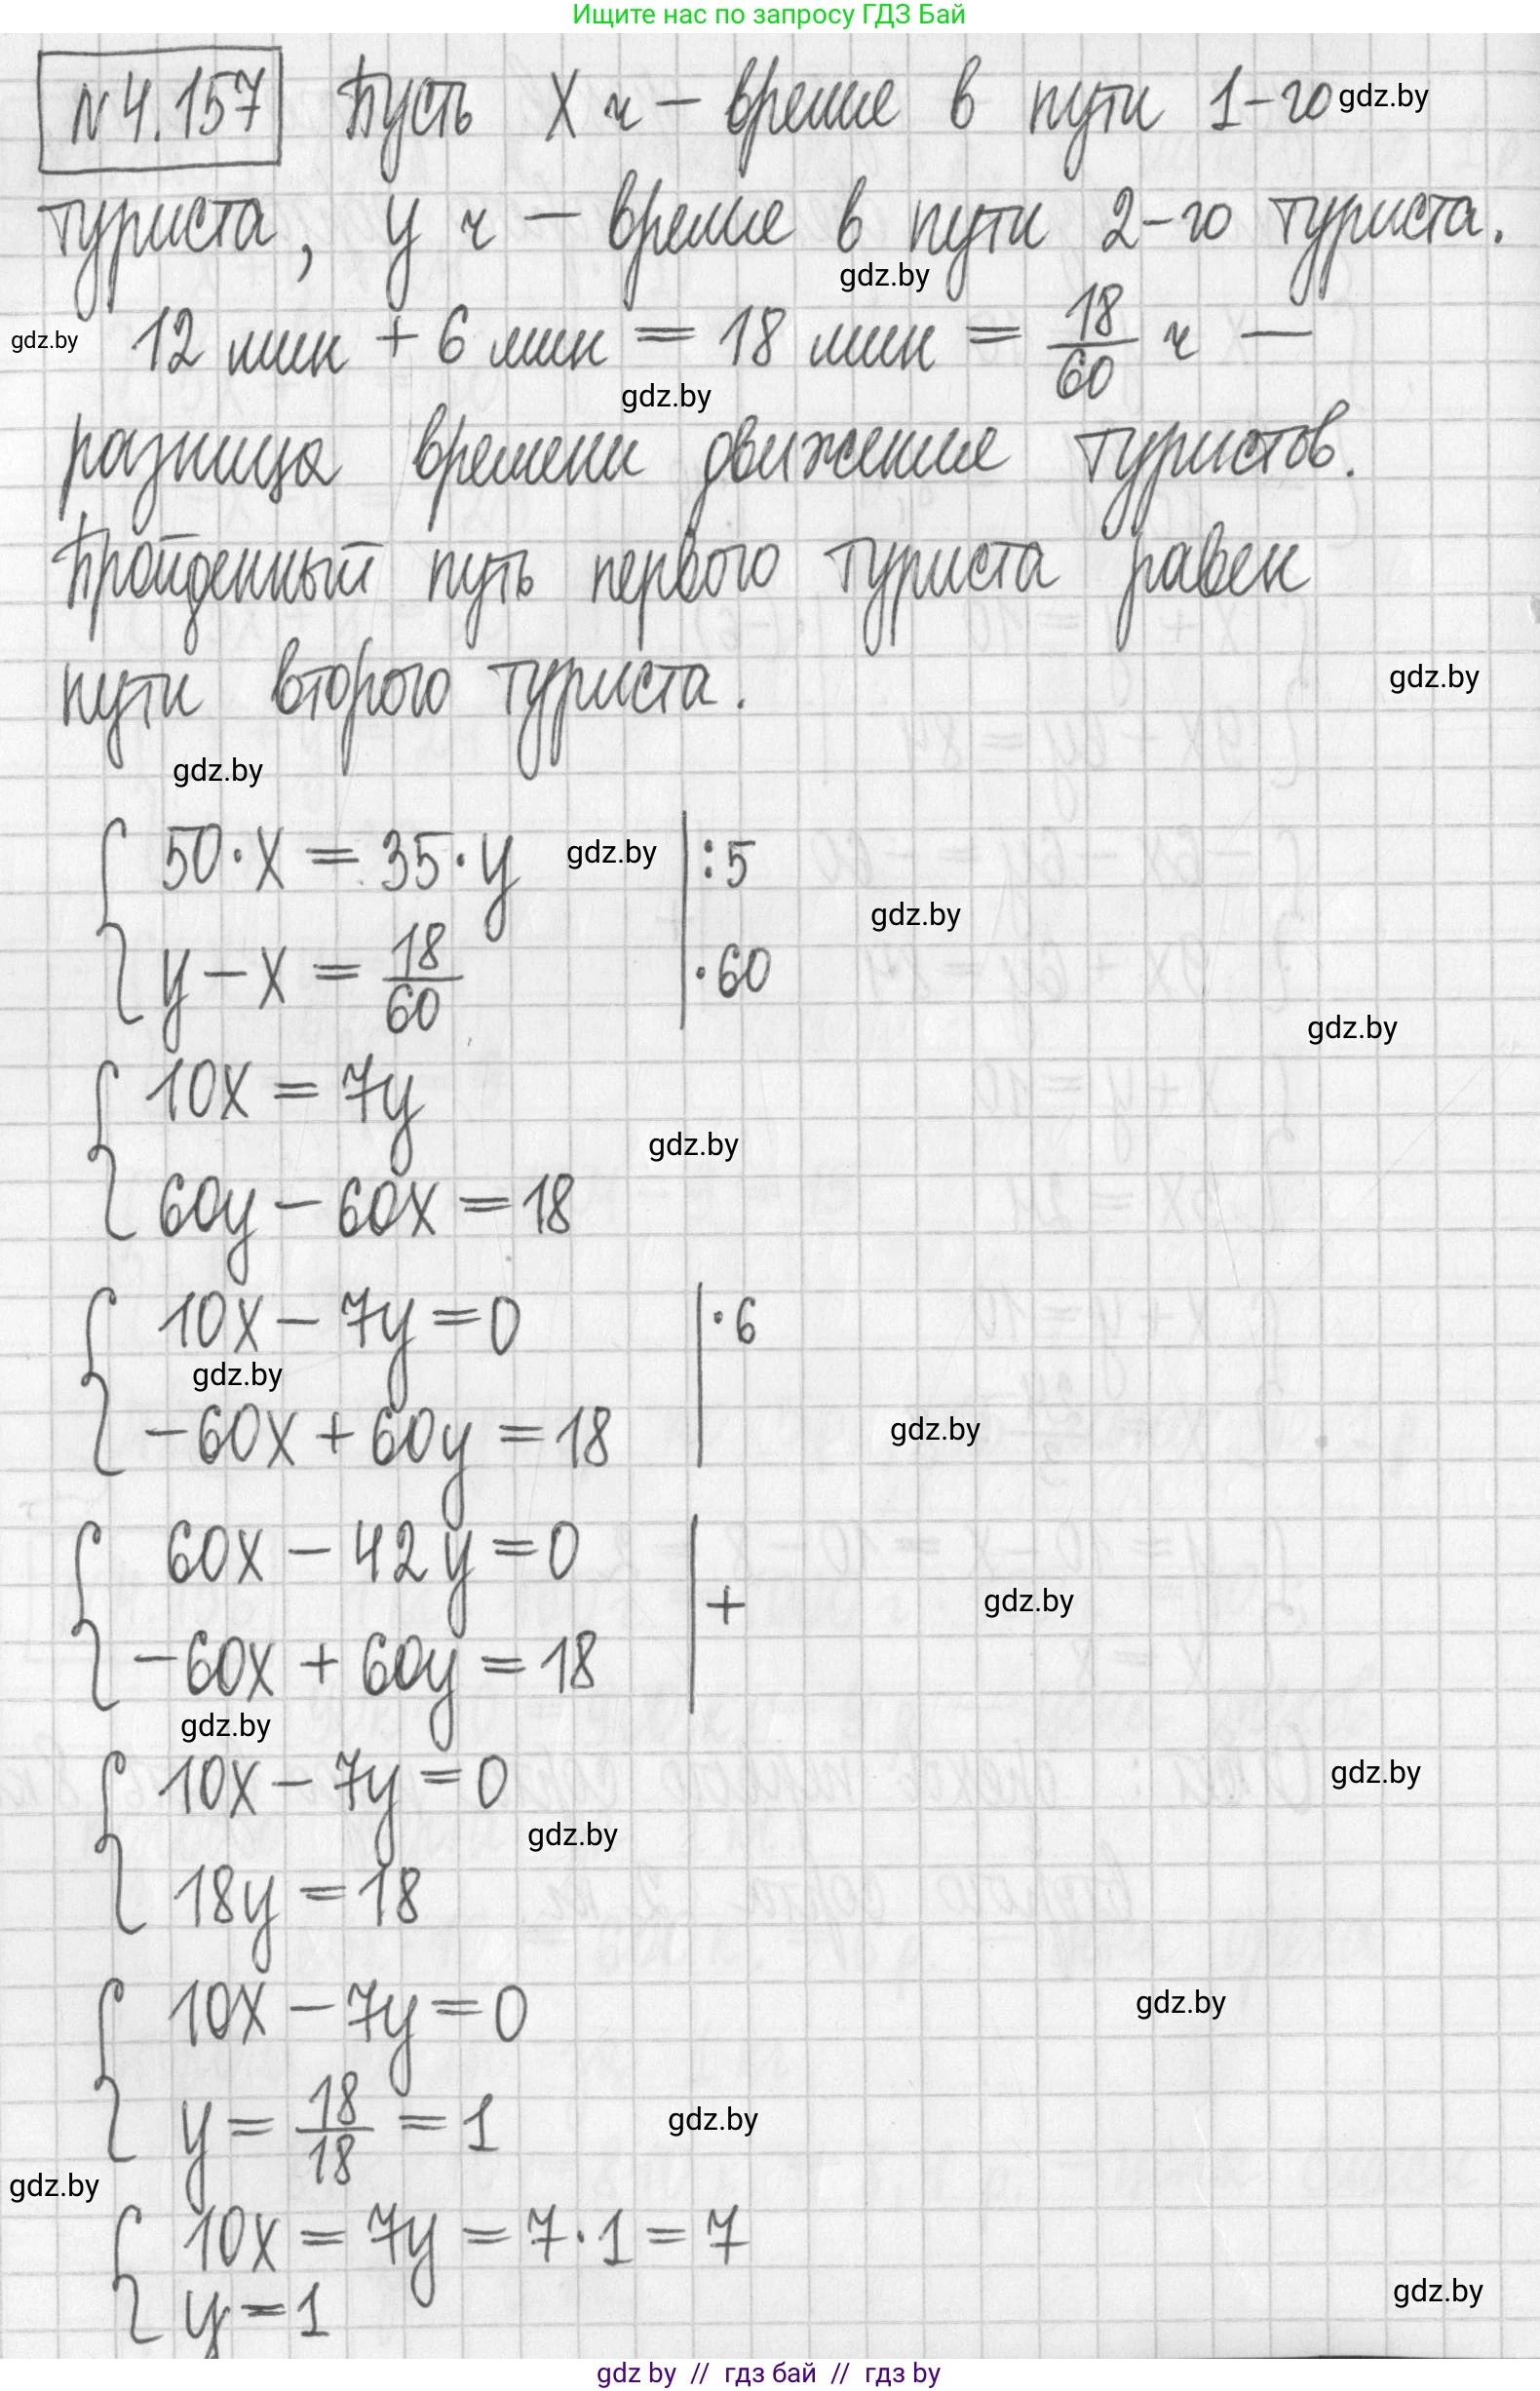 Ищите нас по запросу ГДЗ Бай
N 4.157 Пусть x ч — время в пути 1-го gdz.by
туриста, y ч — время в пути 2-го туриста.
gdz.by
gdz.by 12 мин + 6 мин = 18 мин = 18/60 ч —
gdz.by
разница времени движения туристов.
Пройденный путь первого туриста равен
пути второго туриста.
gdz.by
gdz.by
{ 50·x = 35·y gdz.by | :5
gdz.by
y - x = 18/60 | ·60
gdz.by
{ 10x = 7y
gdz.by
60y - 60x = 18
{ 10x - 7y = 0 | ·6
gdz.by
-60x + 60y = 18 gdz.by
{ 60x - 42y = 0 | +
gdz.by
-60x + 60y = 18
gdz.by
{ 10x - 7y = 0 gdz.by
gdz.by
18y = 18
{ 10x - 7y = 0 gdz.by
y = 18/18 = 1 gdz.by
gdz.by
{ 10x = 7y = 7·1 = 7
gdz.by
y = 1
gdz by // гдз бай // гдз by